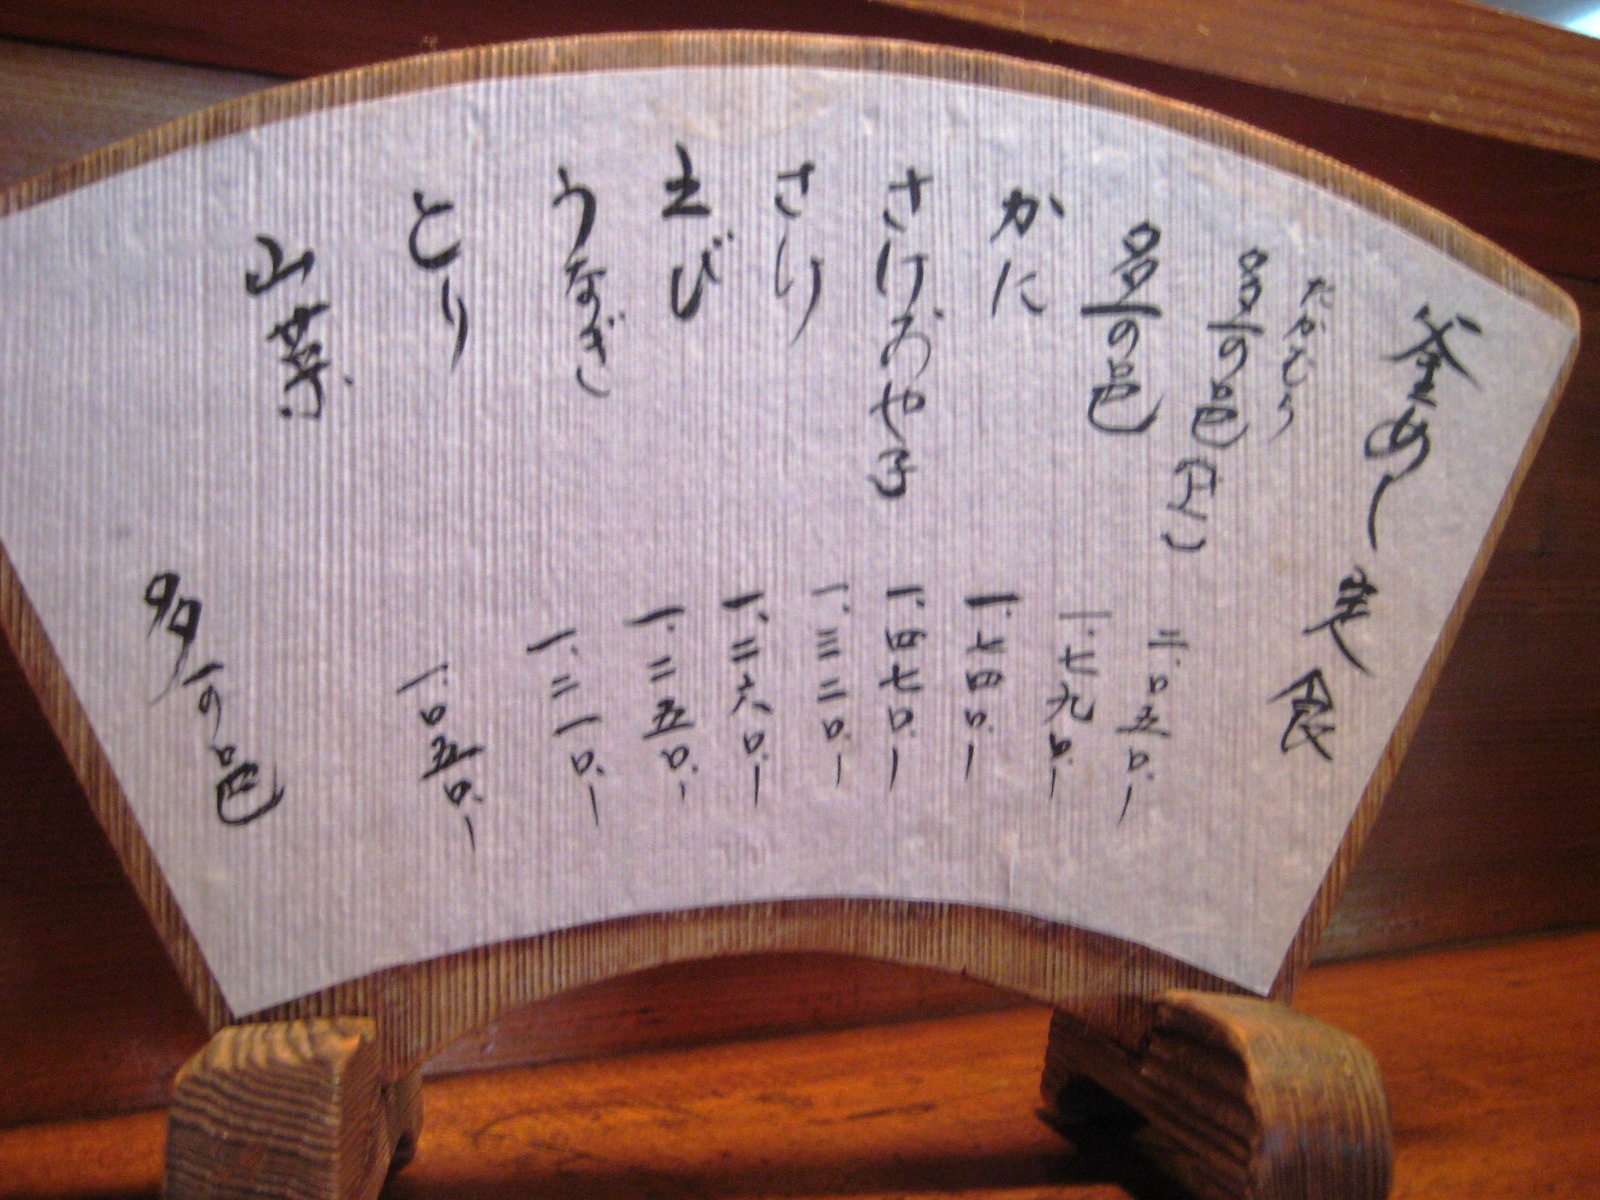 釜めし定食
たかむら
多可邑(上) 二、〇五〇.ー
多可邑 一、七九〇.ー
かに 一、七四〇.ー
さけおや子 一、四七〇.ー
さけ 一、三二〇.ー
えび 一、二六〇.ー
うなぎ 一、二五〇.ー
とり 一、二一〇.ー
山菜 一、〇五〇.ー
多可邑